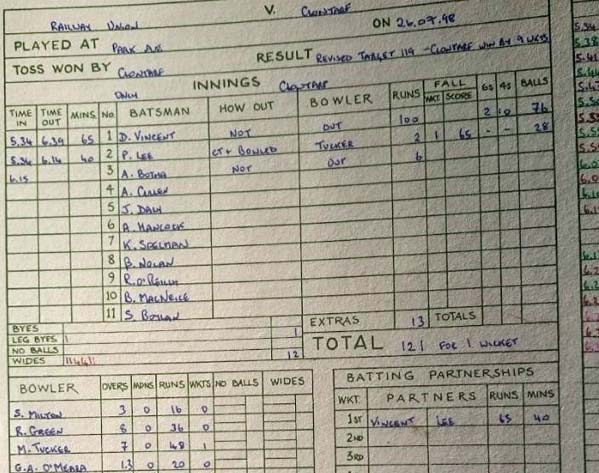 RAILWAY UNION V. CLONTARF
PLAYED AT PARK AVE ON 26.07.98
TOSS WON BY CLONTARF RESULT REVISED TARGET 119 - CLONTARF WIN BY 9 WKTS
ONLY INNINGS CLONTARF
TIME IN TIME OUT MINS No. BATSMAN HOW OUT BOWLER RUNS FALL WKT SCORE 6s 4s BALLS
5.34 6.39 65 1 D. VINCENT NOT OUT 100 2 10 76
5.34 6.14 40 2 P. LEE CT + BOWLED TUCKER 2 1 65 - - 28
6.15 3 A. BOTHA NOT OUT 6
4 A. CULLEN
5 J. DALY
6 A. HANCOCK
7 K. SPELMAN
8 B. NOLAN
9 R. O'REILLY
10 B. MACNEICE
11 S. BOYLAN
BYES
LEG BYES 1 1
NO BALLS
WIDES 12
EXTRAS 13 TOTALS
TOTAL 121 FOR 1 WICKET
BOWLER OVERS MDNS RUNS WKTS NO BALLS WIDES
S. MILTON 3 0 16 0
R. GREEN 5 0 36 0
M. TUCKER 7 0 48 1
G.A. O'MEARA 1.3 0 20 0
BATTING PARTNERSHIPS
WKT. PARTNERS RUNS MINS
1ST VINCENT LEE 65 40
2ND
3RD